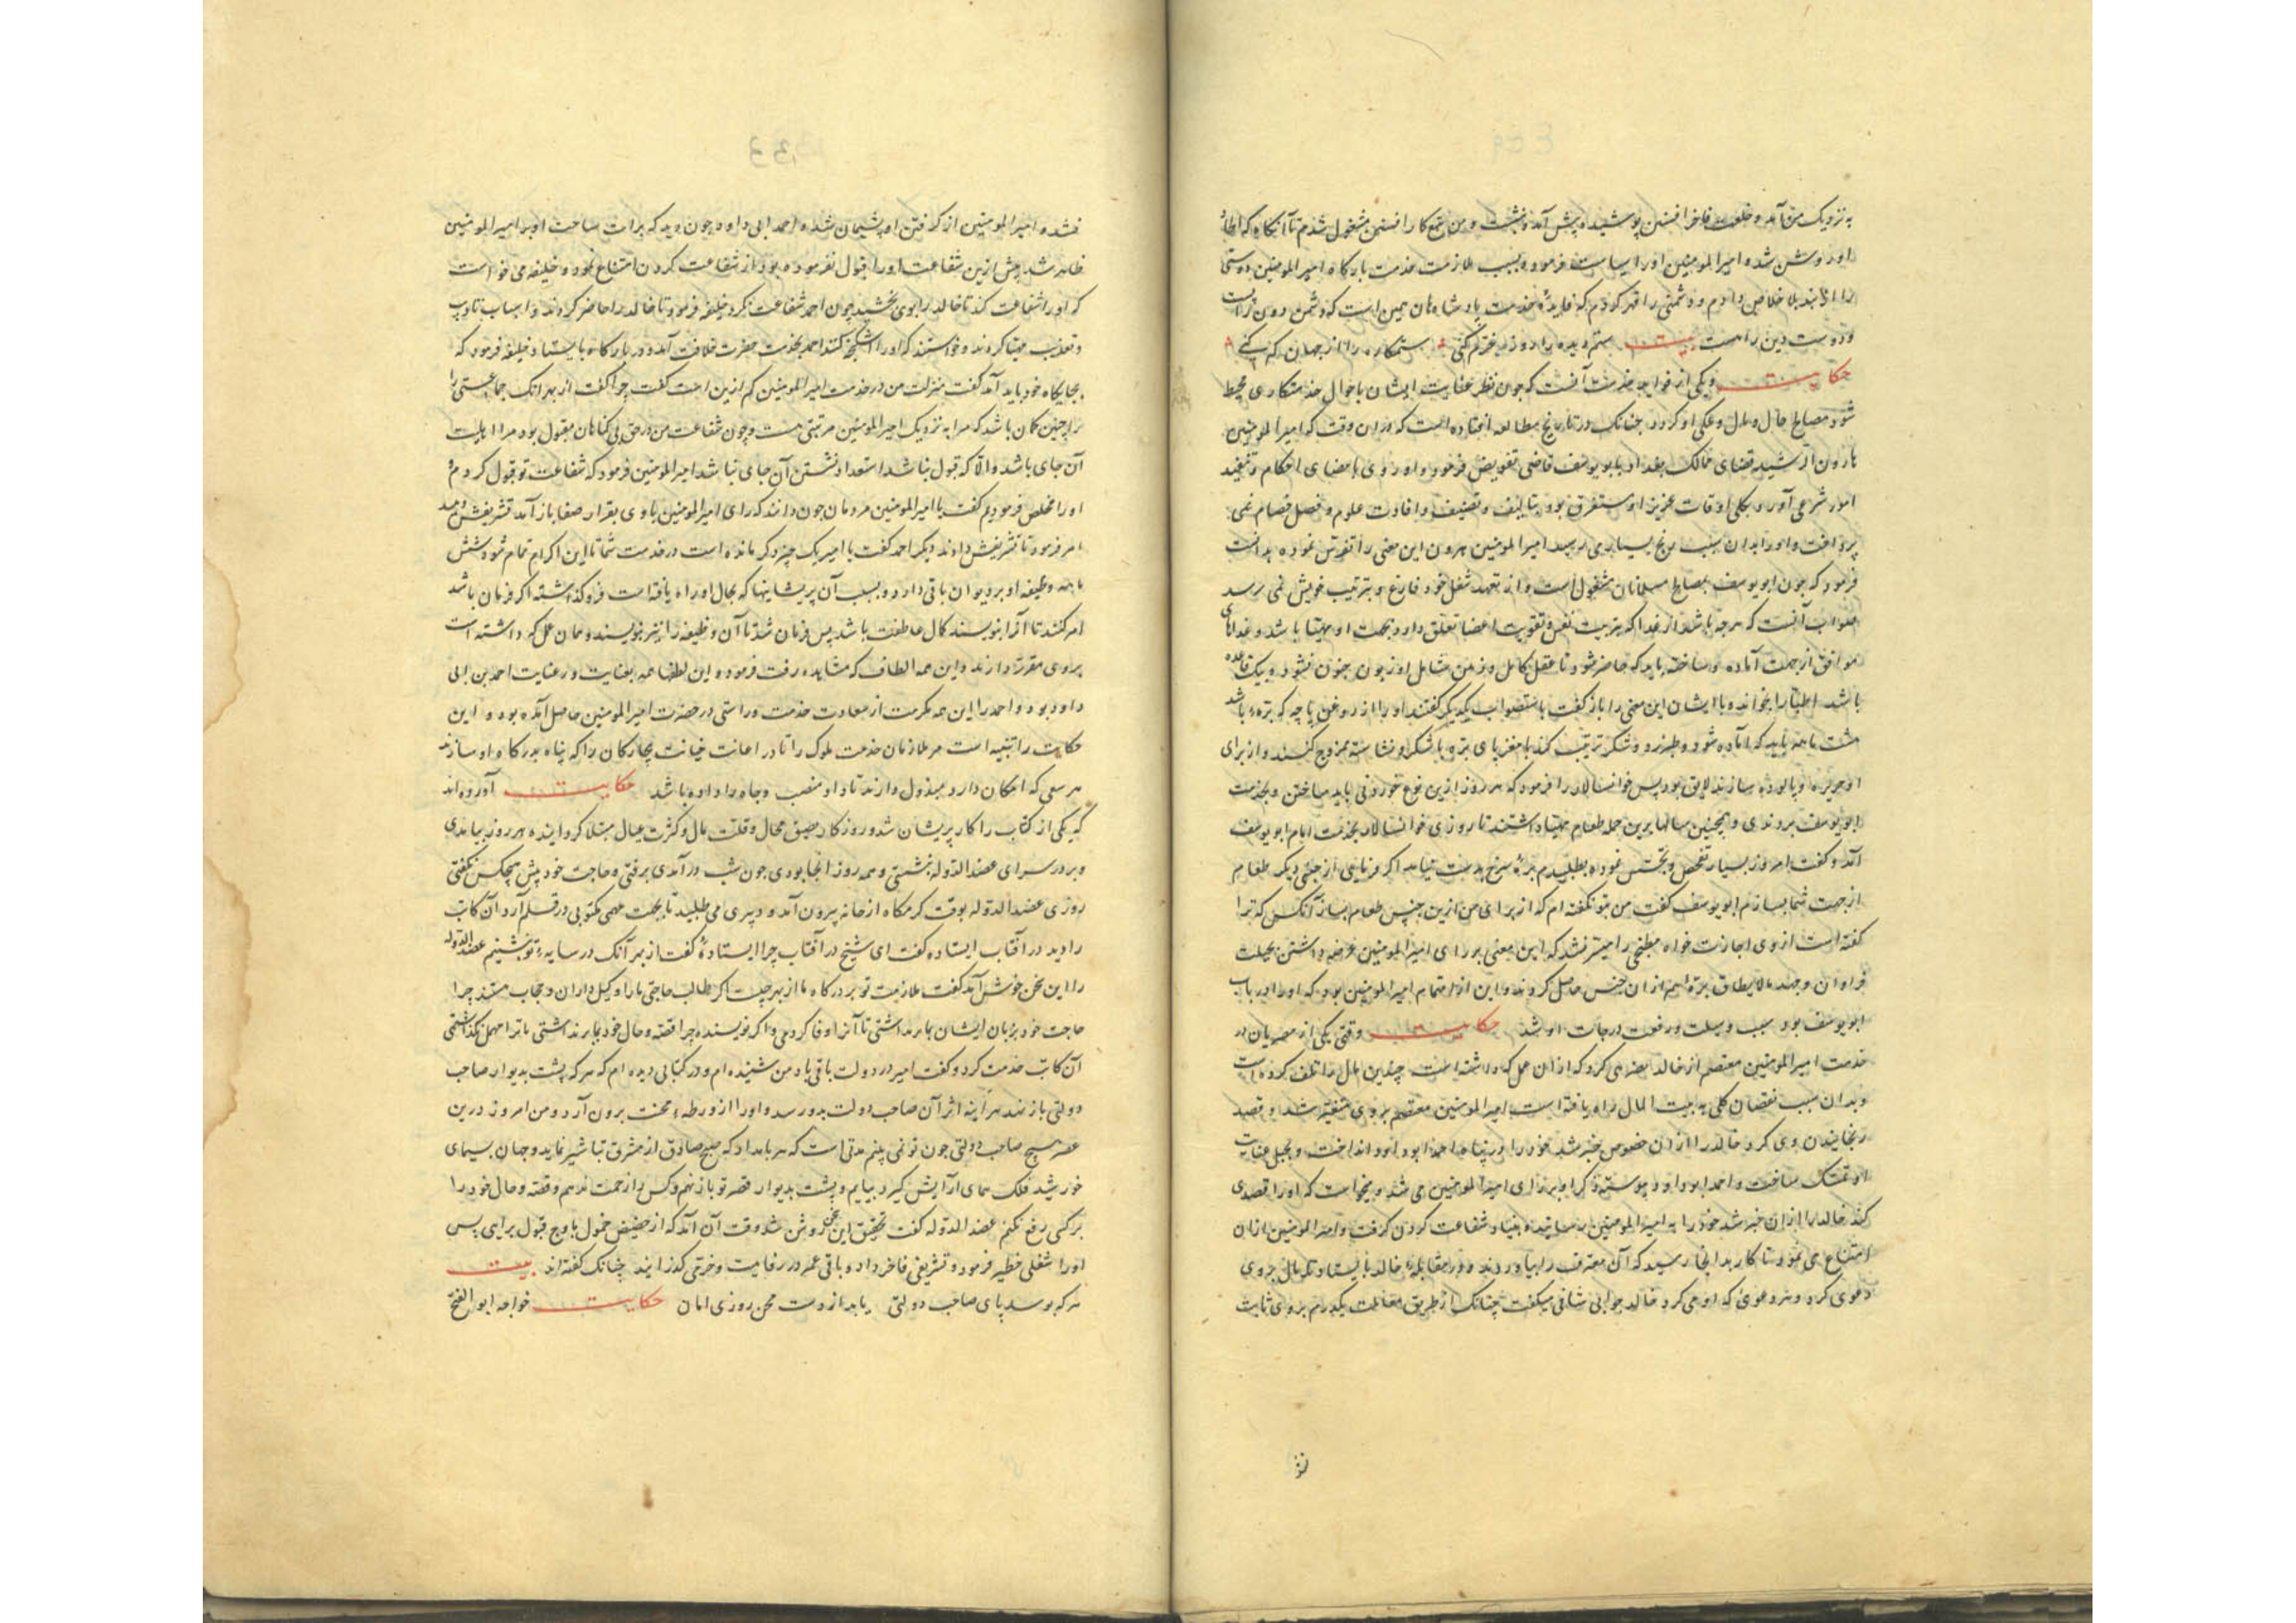 به نزدیک من آمد و خلعت فاخر افشین پوشیده پیش آمد و بنشست و من بتمع کار افشین مشغول شدم تا آنگاه که
او روشن شد و امیر المومنین او را سیاست فرمود و بسبب ملازمت خدمت بارگاه امیر المومنین دوستی
را از بند بلا خلاص دادم و دشمنی را قهر کردم که فایده خدمت پادشاهان همین است که دشمن
و دوست بیت ستم دیده را دوز بر غم کنی ستمکاره را از جهان کم کنی
حکایت و یکی از فواید خدمت آنست که چون نظر عنایت ایشان باحوال خدمتکاری محیط
شود مصالح حال و مال و ملکی او گردد چنانک در تاریخ مطالعه افتاده است که در آن وقت که امیر المومنین
هارون الرشید قضای ممالک بغداد بابو یوسف قاضی تفویض فرمود و او روی بامضای احکام و تنفیذ
امور شرعی آورد و بکلی اوقات عزیز او مستغرق بود بتالیف و تصنیف و افادت علوم و فصل خصام نمی
پرداخت و او را بدان سبب رنج بسیار می رسید امیر المومنین هرون این معنی را تفرس نموده بدانست
فرمود که چون ابو یوسف بمصالح مسلمانان مشغول است و از تعهد شغل خود فارغ و بترتیب خویش نمی رسد
صواب آنست که هرچه باشد از غذا که بتربیت نفس و تقویت اعضا تعلق دارد بجهت او مهیا باشد و غذاهای
موافق از جهت آماده و ساخته باید که حاضر شود تا عقل کامل و ذهن شامل او زبون جنون نشود و یک قاعده
باشد اطبا را بخواند و با ایشان این معنی را باز گفت باستصواب یکدیگر گفتند او را از روغن پاچه که بره باشد
هشت تا همه باید که آماده شود و طبرزد و شکر ترتیب کند با مغز پای بره با شکر و نشاسته ممزوج کنند و از برای
او حریره و پالوده سازند لایق بود پس خوانسالار را فرمود که هر روز ازین نوع خوردنی باید ساختن و بخدمت
ابو یوسف بردندی و همچنین سالها برین جمله طعام مهیا داشتند تا روزی خوانسالار بخدمت امام ابو یوسف
آمد و گفت امروز بسیار تفحص و تجسس نموده بطلبیدم بره سرخ بدست نیامد اگر فرمایی از جنس دیگر طعام
از جهت شما بسازم ابو یوسف گفت من بتو نگفته ام که از برای من ازین جنس طعام بساز آنکس که ترا
گفته است از وی اجازت خواه مطبخی را میسر نشد که این معنی بر رای امیر المومنین عرضه داشتن بحیلت
فراوان و جهد مالایطاق بره هم از آن جنس حاصل کردند و این از اهتمام امیر المومنین بود که او را در باب
ابو یوسف بود سبب وسیلت و رفعت درجات او شد حکایت وقتی یکی از مصریان در
خدمت امیر المومنین معتصم از خالد بعضه می کرد که از آن عمل که داشته است چندین مال را تلف کرده است
و بدان سبب نقصان کلی به بیت المال راه یافته است امیر المومنین معتصم بر وی متغیر شد و قصد
رنجانیدن وی کرد خالد را از آن خصوص خبر شد خود را در پناه احمد ابو داود انداخت و بحبل عنایت
او تمسک ساخت و احمد ابو داود پیوسته ذکر او بر رای امیر المومنین می شد و میخواست که او را قصدی
کند خالد را از آن خبر شد خود را به امیر المومنین رسانیده بنیاد شفاعت کردن گرفت و امیر المومنین از آن
امتناع می نمود تا کار بدانجا رسید که آن معترف را بیاوردند و در مقابله خالد بایستاد تا مال بر وی
دعوی کرد و هر دعوی که او می کرد خالد جوابی شافی میگفت چنانک از طریق معاملت یکدرم بر وی ثابت
نشد
نشد و امیر المومنین از گرفتن او پشیمان شد و احمد ابی داود چون دید که برات ساحت او بر امیر المومنین
ظاهر شد پیش ازین شفاعت او را قبول نفرموده بود از شفاعت کردن امتناع نمود و خلیفه می خواست
که او را شفاعت کند تا خالد را بوی بخشید چون احمد شفاعت نکرد خلیفه فرمود تا خالد را حاضر کردند و اسباب تادیب
و تعذیب مهیا کردند و خواستند که او را اشکنجه کنند احمد بخدمت حضرت خلافت آمد و در بارگاه بایستاد خلیفه فرمود که
بجایگاه خود باید آمد گفت منزلت من در خدمت امیر المومنین کم ازین است گفت چرا گفت از بهر آنک جماعتی را
بر چنین گمان باشد که مرا به نزدیک امیر المومنین مرتبتی هست و چون شفاعت من در حق بی گناهان مقبول بود مرا اهلیت
آن جای باشد و الا که قبول نباشد استعداد نشستن آن جای نباشد امیر المومنین فرمود که شفاعت تو قبول کردم و
او را مخلص فرمودم گفت یا امیر المومنین مردمان چون دانند که رای امیر المومنین با وی بقرار صفا باز آمد تشریفش دهید
امر فرمود تا تشریفش دادند دیگر احمد گفت یا امیر یک چیز دگر مانده است در خدمت شما تا این اکرام تمام شود شش
ماهه وظیفه او بر دیوان باقی دارد و بسبب آن پریشانیها که بحال او راه یافته است فرو گذاشته اگر فرمان باشد
امر کنند تا آنرا بنویسند کمال عاطفت باشد پس فرمان شد تا آن وظیفه را نیز بنویسند و همان عمل که داشته است
بروی مقرر دارند و این همه الطاف که مشاهده رفت فرمود و این لطفها همه بعنایت و رعایت احمد بن ابی
داود بود و احمد را این همه مکرمت از سعادت خدمت و راستی در حضرت امیر المومنین حاصل آمده بود و این
حکایت را تنبیه است مر ملازمان خدمت ملوک را تا در اعانت خیانت بیچارگان را که پناه بدرگاه او سازند
هر سعی که امکان دارد مبذول دارند تا داد منصب و جاه را داده باشد حکایت آورده اند
که یکی از کتاب را کار پریشان شد و روزگار بضیق مجال و قلت مال و کثرت عیال مبتلا گردانیده هر روز بیامدی
و بر در سرای عضد الدوله نشستی و همه روز آنجا بودی چون شب درآمدی برفتی و حاجت خود پیش هیچکس نگفتی
روزی عضد الدوله بوقت گرمگاه از خانه بیرون آمد و دبیری می طلبید تا بجهت مهمی مکتوبی در قلم آرد آن کاتب
را دید در آفتاب ایستاده گفت ای شیخ در آفتاب چرا ایستاده گفت از بهر آنک در سایه تو نشینم عضد الدوله
را این سخن خوش آمد گفت ملازمت تو بر درگاه ما از بهر چیست اگر طالب حاجتی ما را وکیل داران و حجاب هستند چرا
حاجت خود بزبان ایشان بما برنداشتی تا آنرا وفا کردمی و اگر نویسنده چرا قصه و حال خود بما برنداشتی تا ترا مهمل نگذاشتمی
آن کاتب خدمت کرد و گفت امیر در دولت باقی باد من شنیده ام و در کتابی دیده ام که هر که پشت بدیوار صاحب
دولتی باز نهد هر آینه اثر آن صاحب دولت بدو رسد و او را از ورطه محنت برون آرد و من امروز درین
عصر هیچ صاحب دولتی چون تو نمی بینم مدتی است که هر بامداد که صبح صادق از مشرق تباشیر نماید و جهان بسیمای
خورشید فلک سمای آرایش گیرد بیایم و پشت بدیوار قصر تو باز نهم و کس را زحمت ندهم و قصه و حال خود را
بر کسی رفع نکنم عضد الدوله گفت تحقیق این سخن روشن شد وقت آن آمد که از حضیض خمول باوج قبول برایی پس
او را شغلی خطیر فرمود و تشریفی فاخر داد و باقی عمر در رفاهیت و خرمی گذرانید چنانک گفته اند بیت
هر که بوسد پای صاحب دولتی یابد از دست محن روزی امان حکایت خواجه ابو الفتح